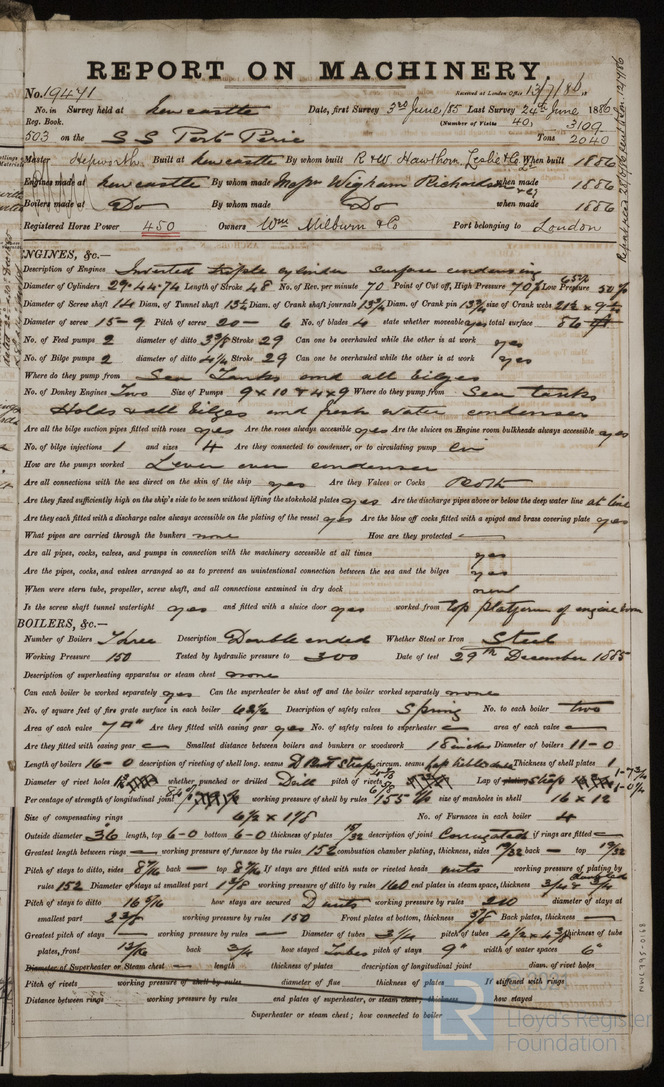 REPORT ON MACHINERY.
No. 19471 Received at London Office 13/7/86 18
No. in Survey held at Newcastle Date, first Survey 3rd June /85 Last Survey 24th June 1886
Reg. Book. (Number of Visits 40.) 3109
503 on the SS Port Pirie Tons 2040
Master Hepworth Built at Newcastle By whom built R & W Hawthorn Leslie & Co. When built 1886
Engines made at Newcastle By whom made Messrs Wigham Richardson & Co when made 1886
Boilers made at Do By whom made Do when made 1886
Registered Horse Power 450 Owners Wm Milburn & Co Port belonging to London
ENGINES, &c.—
Description of Engines Inverted triple cylinder surface condensing
Diameter of Cylinders 29-44-74 Length of Stroke 48 No. of Rev. per minute 70 Point of Cut off, High Pressure 70% Low Pressure 50%
Diameter of Screw shaft 14 Diam. of Tunnel shaft 13¼ Diam. of Crank shaft journals 13¾ Diam. of Crank pin 13¾ size of Crank webs
Diameter of screw 15-9 Pitch of screw 20-6 No. of blades 4 state whether moveable yes total surface 86 ft
No. of Feed pumps 2 diameter of ditto Stroke 29 Can one be overhauled while the other is at work yes
No. of Bilge pumps 2 diameter of ditto Stroke 29 Can one be overhauled while the other is at work yes
Where do they pump from Sea Tanks and all bilges
No. of Donkey Engines Two Size of Pumps 9 x 10 & 4 x 9 Where do they pump from Sea tanks
Holds & all bilges and fresh water condenser
Are all the bilge suction pipes fitted with roses yes Are the roses always accessible yes Are the sluices on Engine room bulkheads always accessible yes
No. of bilge injections 1 and sizes 4 Are they connected to condenser, or to circulating pump Cir
How are the pumps worked Lever over condenser
Are all connections with the sea direct on the skin of the ship yes Are they Valves or Cocks Both
Are they fixed sufficiently high on the ship's side to be seen without lifting the stokehold plates yes Are the discharge pipes above or below the deep water line at line
Are they each fitted with a discharge valve always accessible on the plating of the vessel yes Are the blow off cocks fitted with a spigot and brass covering plate yes
What pipes are carried through the bunkers none How are they protected —
Are all pipes, cocks, valves, and pumps in connection with the machinery accessible at all times yes
Are the pipes, cocks, and valves arranged so as to prevent an unintentional connection between the sea and the bilges yes
When were stern tube, propeller, screw shaft, and all connections examined in dry dock new
Is the screw shaft tunnel watertight yes and fitted with a sluice door yes worked from top platform of engine room
BOILERS, &c.—
Number of Boilers Three Description Double ended Whether Steel or Iron Steel
Working Pressure 150 Tested by hydraulic pressure to 300 Date of test 29th December 1885
Description of superheating apparatus or steam chest none
Can each boiler be worked separately yes Can the superheater be shut off and the boiler worked separately none
No. of square feet of fire grate surface in each boiler 62½ Description of safety valves Spring No. to each boiler two
Area of each valve 7□" Are they fitted with easing gear yes No. of safety valves to superheater — area of each valve —
Are they fitted with easing gear — Smallest distance between boilers and bunkers or woodwork 18 inches Diameter of boilers 11-0
Length of boilers 16-0 description of riveting of shell long. seams D Butt Straps circum. seams Lap treble Thickness of shell plates 1
Diameter of rivet holes whether punched or drilled Drill pitch of rivets Lap of plating Straps
Per centage of strength of longitudinal joint working pressure of shell by rules 155 size of manholes in shell 16 x 12
Size of compensating rings 6½ x 1⅛ No. of Furnaces in each boiler 4
Outside diameter 36 length, top 6-0 bottom 6-0 thickness of plates 15/32 description of joint Corrugated if rings are fitted —
Greatest length between rings — working pressure of furnace by the rules 152 combustion chamber plating, thickness, sides 19/32 back — top 19/32
Pitch of stays to ditto, sides 8 7/16 back — top 8 7/16 If stays are fitted with nuts or riveted heads nuts working pressure of plating by
rules 152 Diameter of stays at smallest part 1⅜ working pressure of ditto by rules 160 end plates in steam space, thickness
Pitch of stays to ditto how stays are secured D nuts working pressure by rules 210 diameter of stays at
smallest part 2⅜ working pressure by rules 150 Front plates at bottom, thickness ⅝ Back plates, thickness —
Greatest pitch of stays — working pressure by rules — Diameter of tubes 3¼ pitch of tubes 4½ x 4⅜ thickness of tube
plates, front 13/16 back ¾ how stayed Tubes pitch of stays 9" width of water spaces 6"
Diameter of Superheater or Steam chest — length thickness of plates description of longitudinal joint diam. of rivet holes
Pitch of rivets working pressure of shell by rules diameter of flue thickness of plates If stiffened with rings
Distance between rings working pressure by rules end plates of superheater, or steam chest; thickness how stayed
Superheater or steam chest; how connected to boiler
NWC995-0168
LR © 2021
Lloyd's Register
Foundation